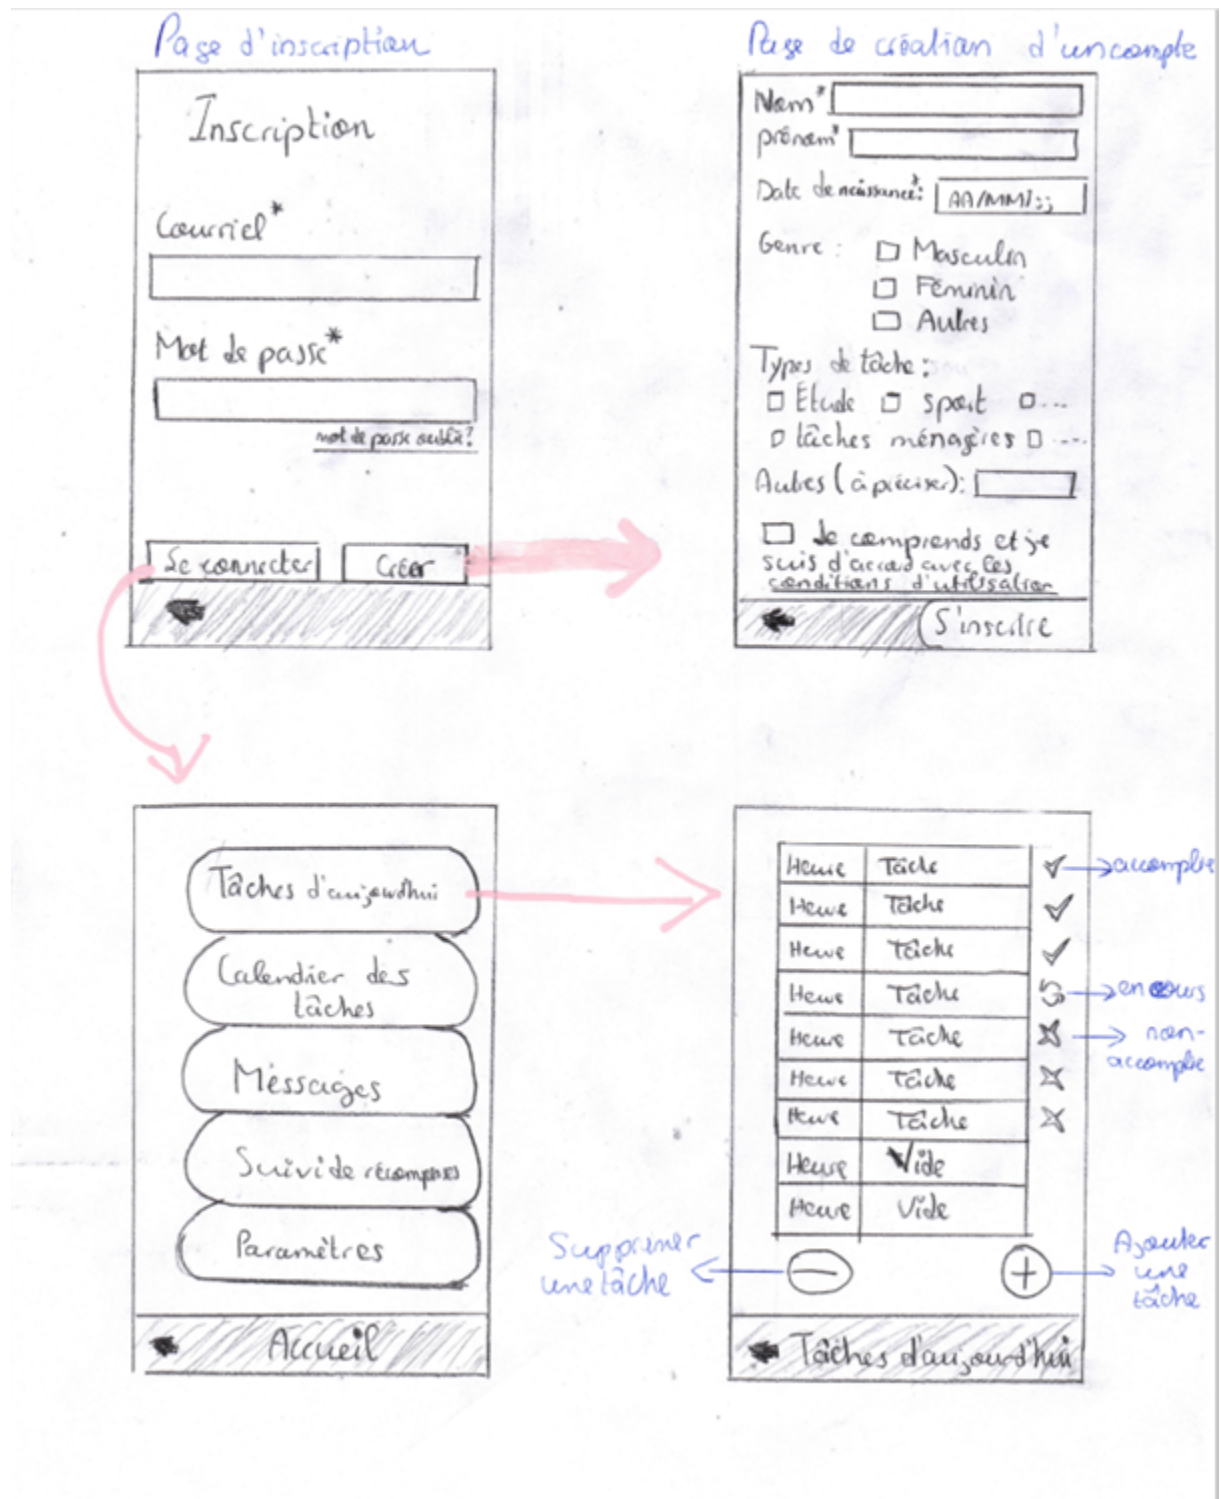 Page d'inscription
Inscription
Courriel*
Mot de passe*
mot de passe oublié?
Se connecter
Créer
Page de création d'un compte
Nom*
prénom*
Date de naissance*:
Genre :
Masculin
Féminin
Autres
Types de tâche :
Étude sport ...
tâches ménagères ...
Autres (à préciser):
Je comprends et je
suis d'accord avec les
conditions d'utilisation
S'inscrire
Tâches d'aujourdhui
Calendrier des
tâches
Messages
Suivi de récompenses
Paramètres
Accueil
Heure Tâche accomplie
Heure Tâche
Heure Tâche
Heure Tâche en cours
Heure Tâche non-
accomplie
Heure Tâche
Heure Tâche
Heure Vide
Heure Vide
Supprimer
une tâche
−
+
Ajouter
une
tâche
Tâches d'aujourd'hui